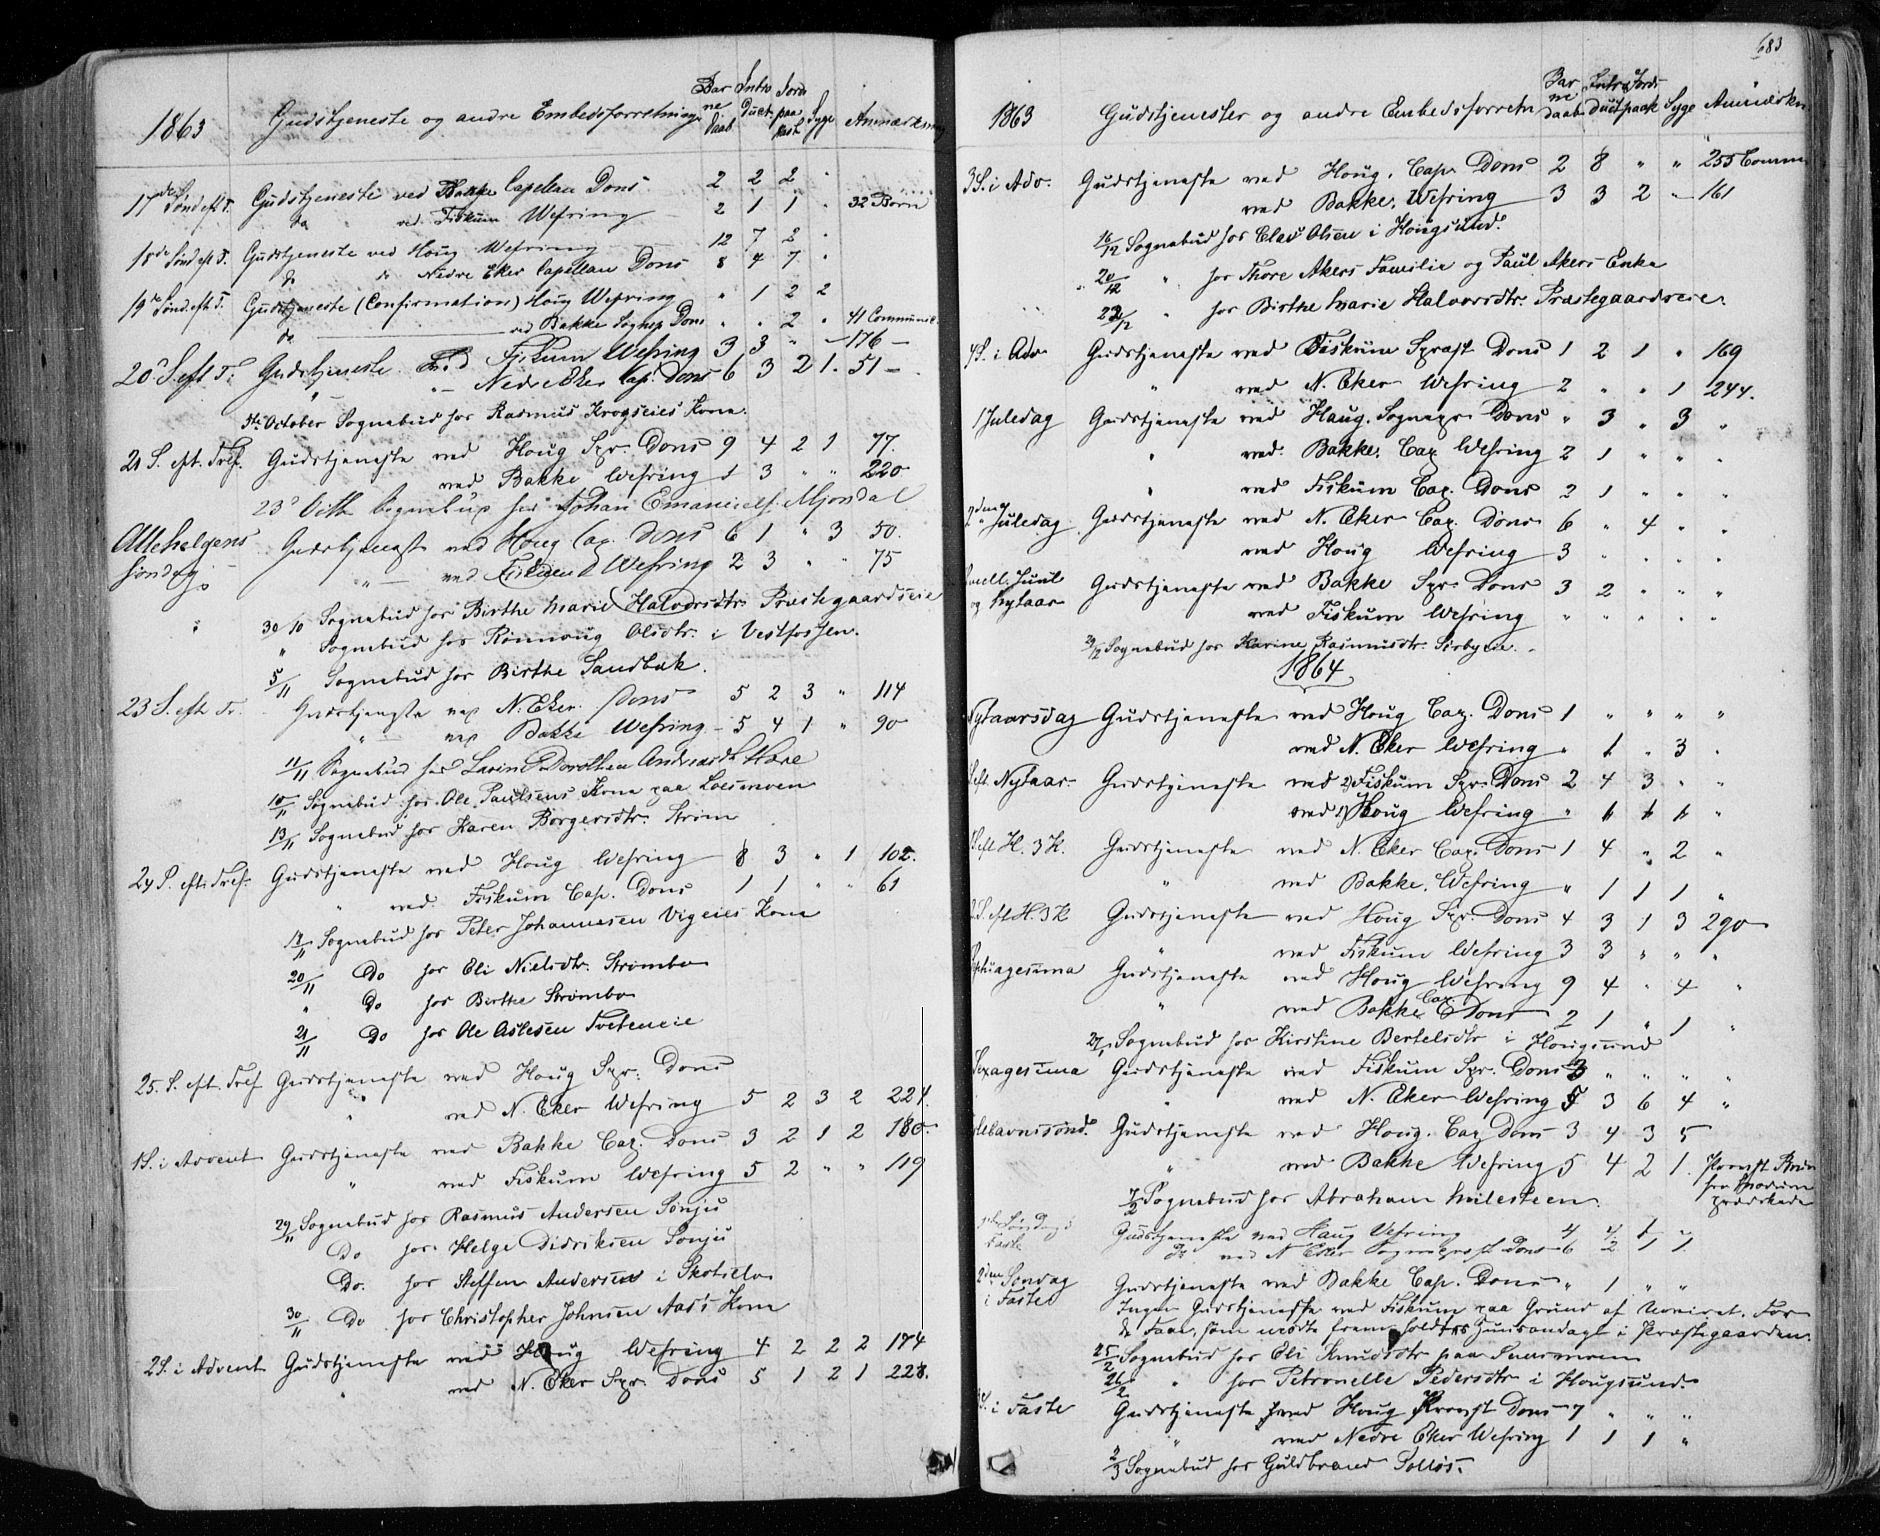 1863 Gudstjeneste og andre Embedsforretning. Barnedaab Introduct. Jordpaakast Syge Anmærkning
17de Søndeft T. Gudstjeneste ved Bakke Capellan Dons 2 2 2 "
do ved Fiskum Wefring 2 1 1 " 32 Børn
18de Søndeft T. Gudstjeneste ved Houg Wefring 12 7 2 "
do do Nedre Eker Capellan Dons 8 4 7 "
19de Søndeft T. Gudstjeneste (Confirmation) Houg Wefring " 1 2 2
do. ved Bakke Sognepr Dons " " 2 " 41 Communic.
20de S eft T. Gudstjeneste ved Fiskum Wefring 3 3 " — 176 —
" — Nedre Eker Cap. Dons 6 3 2 1. 51 —
October Sognebud hos Rasmus Krogseies Kone.
21 S. eft. Tref. Gudstjeneste ved Houg Spr. Dons 9 4 2 1 77.
ved Bakke Wefring 1 3 " " 220
23de Octb Sognebud hos Johan Emanuels. Mjøndal
Allehelgens Søndag Gudstjeneste ved Houg Cap. Dons 6 1 " 3 50.
" — ved Fiskum Wefring 2 3 " " 75
" 30/10 Sognebud hos Birthe Marie Halvorsdtr. Præstegaardseie
" Sognebud hos Rønnoug Olsdtr. i Vestfossen.
5/11 Sognebud hos Birthe Sandbæk.
23 S. eft Tr. Gudstjeneste ved N. Eker. Dons 5 2 3 " 114
" ved Bakke Wefring — 5 4 1 " 90
11/11 Sognebud hos Dorothea Andreasdtr Hore
10/11 Sognebud hos Ole Paulsens Kone paa Loesmoen
13/11 Sognebud hos Karen Borgersdtr. Strøm
24 S. eft. Tref. Gudstjeneste ved Houg Wefring 8 3 " 1 102.
" ved Fiskum Cap. Dons 1 1 " " 61
Sognebud hos Peter Johannesen Vigeies Kone
20/11 Do hos Eli Nielsdtr. Strømbo
" Do hos Birthe Strømbo
21/11 Do hos Ole Aslesen Tveteneie
25. S. eft. Tref Gudstjeneste ved Houg Spr: Dons
" ved N. Eker Wefring 5 2 3 2 224.
1 S. i Advent Gudstjeneste ved Bakke Cap. Dons 3 2 1 2 180.
" ved Fiskum Wefring 5 2 " " 119
29/11 Sognebud hos Rasmus Andersen Sønju
Do hos Helge Didriksen Sønju
Do. hos Steffen Andersen i Skotselv
30/11 Do hos Christopher Johnsen Aas's Kone
2 S. i Advent Gudstjeneste ved Houg Wefring 4 2 2 2 174
" ved N. Eker Spr. Dons 5 1 2 1 228.
683
1863 Gudstjenester og andre Embedsforretn Barnedaab Introduct Jordpaak Syge Anmærkn
3 S. i Adv. Gudstjeneste ved Houg. Cap. Dons 2 8 " " 255 Comm
ved Bakke. Wefring 3 3 2 — 161
16/12 Sognebud hos Olsen i Hougsund.
20/12 " hos Thore Akers Familie og Paul Akers Enke
22/12 " hos Birthe Marie Halvorsdtr. Præstegaardseie.
4 S. i Adv Gudstjeneste ved Fiskum Spræst Dons 1 2 1 " 169
" ved N. Eker Wefring 2 " " 1 244.
1 Juledag Gudstjeneste ved Houg. Sognepr. Dons " 3 " 3 "
" ved. Bakke. Cap Wefring 2 1 " " "
" ved Fiskum Cap. Dons 2 1 " " "
2den Juledag Gudstjeneste ved N. Eker Cap. Dons 6 " 4 " "
ved Houg Wefring 3 " " " "
mell. Juul og Nytaar Gudstjeneste ved Bakke Spr. Dons 3 2 " " "
ved Fiskum Wefring " " " " "
Sognebud hos Karine Rasmusdtr. Sirbyeie.
1864
Nytaarsdag Gudstjeneste ved Houg Cap. Dons 1 " " " "
ved N. Eker Wefring " 1 " 3 "
S. eft Nytaar. Gudstjeneste ved 2) Fiskum Spr. Dons 2 4 3 " "
ved 1) Houg Wefring " 1 1 1 "
1 S. eft H. 3 K. Gudstjeneste ved N. Eker Cap. Dons 1 4 " 2 "
" ved Bakke. Wefring " 1 1 1 "
2 S. eft H. 3 K Gudstjeneste ved Houg Spr. Dons 4 3 1 3 290
" ved Fiskum Wefring 3 3 " " "
Septuagesima Gudstjeneste ved Houg Wefring 9 4 " 4 "
" ved Bakke Cap. Dons 2 1 " 1 "
27/1 Sognebud hos Kirstine Bertelsdtr i Hougsund
Sexagesima Gudstjeneste ved Fiskum Spr. Dons 3 " " " "
" ved N. Eker Wefring 5 3 6 4 "
Fastelavnssønd. Gudstjeneste ved Houg. Cap Dons 3 4 3 5
" ved Bakke Wefring 5 4 2 1. Provst
fra Modum prædikede
7/2 Sognebud hos Abraham Hvilesteen.
1ste Søndag i Faste Gudstjeneste ved Houg Wefring 4 4 1 "
do ved N Eker Sognepræst Dons 6 2 1 1
2den Søndag i Faste Gudstjeneste ved Bakke Cap. Dons " 1 " "
Ingen Gudstjeneste ved Fiskum paa Grund af Uveiret. For
de Faae, som mødte frem holdtes Huusandagt i Præstegaarden.
25/2 Sognebud hos Eli Knudsdtr paa
26/2 " hos Petronelle Pedersdtr i Hougsund.
3 S. i Faste Gudstjeneste ved Houg Provst Dons 7 " " "
" ved Nedre Eker Wefring 1 1 1 "
2/3 Sognebud hos Guldbrand Solløs.